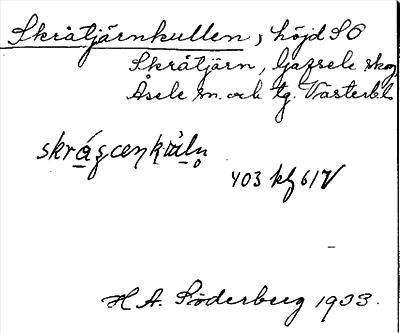 Skråtjärnkullen, höjd SO
Skråtjärn, Gafsele skog,
Åsele sn. och tg. Västerb.
403 kf 61 V
H A. Söderberg 1933.